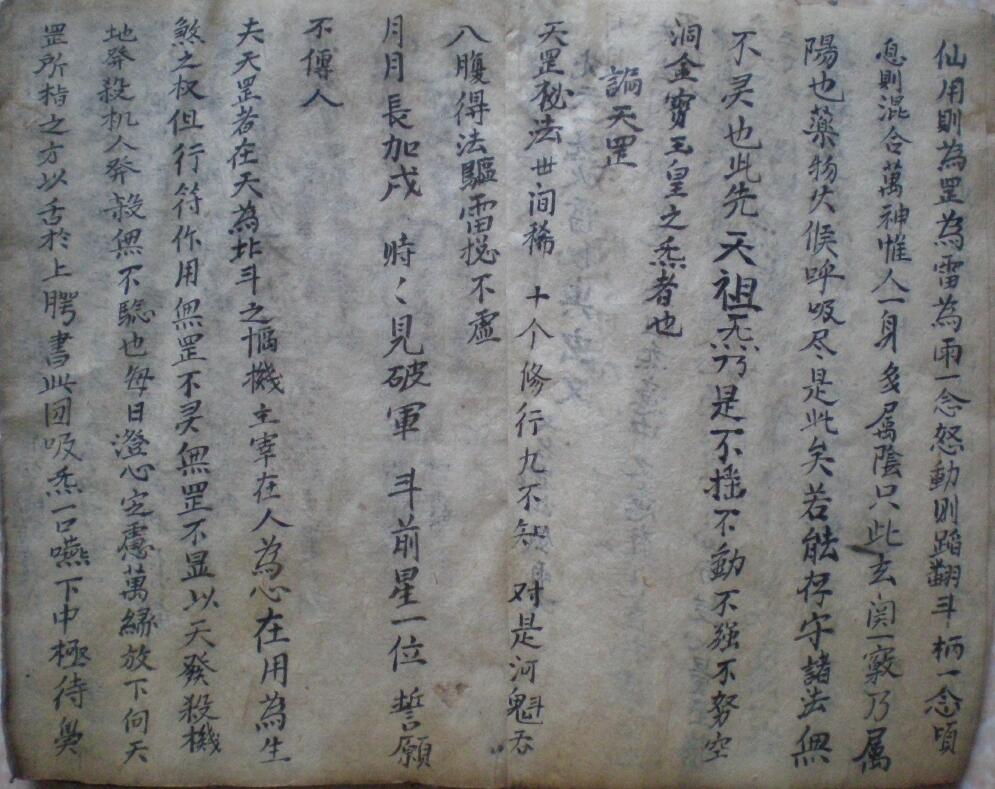 仙用則為罡為雷為雨一念怒動則蹈翻斗柄一念頃
息則混合萬神惟人一身多属陰只此玄関一竅乃属
陽也藥物火候呼吸尽是此矣若能存守諸法無
不灵也此先天祖炁乃是不摇不動不强不努空
洞金寳玉皇之炁者也
謆天罡
天罡秘法世间稀 十个修行九不知 对是河魁吞
八腹得法驅雷揔不虛
月月長加戌 時〻見破軍 斗前星一位 誓願
不傳人
夫天罡者在天為北斗之樞機主宰在人為心在用為生
煞之权但行符作用無罡不灵無罡不显以天發殺機
地發殺机人發殺無不驗也每日澄心定慮萬緣放下向天
罡所指之方以舌於上腭書此囙吸炁一口嚥下中極待臭